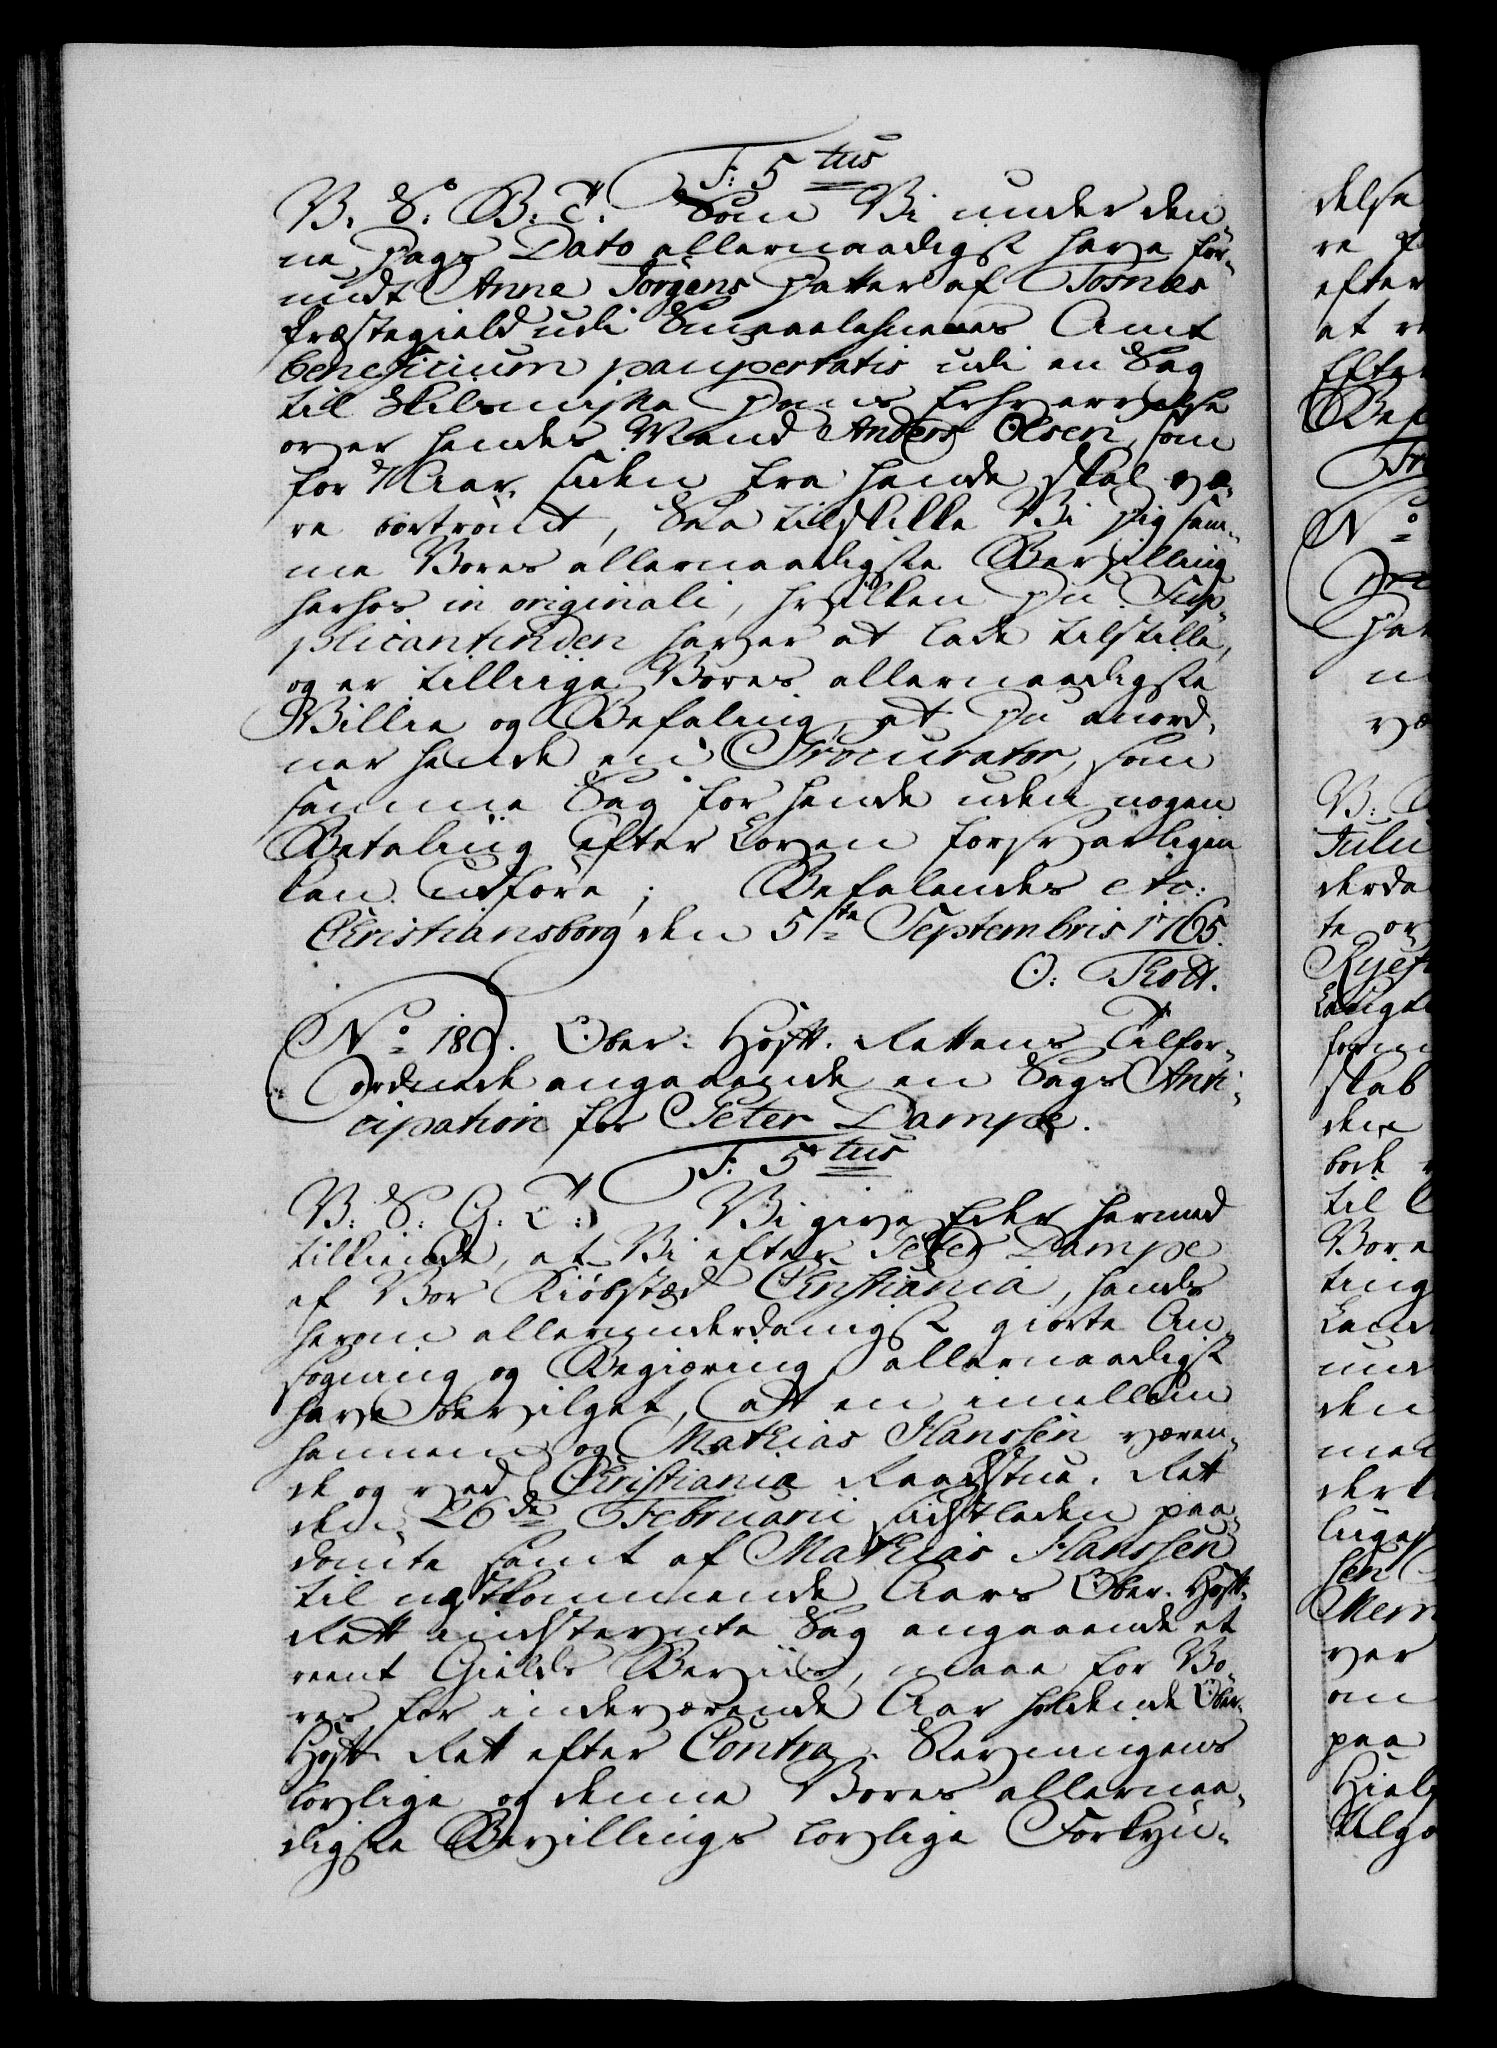 F: 5tus
V. S. B. T. Som Vi under den
ne Dags Dato allernaadigst have for-
undt Anne Jørgens Datter af Tosnes
Præstegield udi Smaalehnenes Amt
beneficium paupertatis udi en Sag
til Skilsmisse Doms Erhvervelse
over hendes Mand Anders Olsen, som
for 7 Aar siden fra hende skal væ-
re bortrømt, Saa tilskikke Vi Dig sam-
me Vores allernaadigste Bevilling
herhos in originali, hvilken Du Sup-
plicantinden haver at lade tilstille,
og er tilliige Vores allernaadigste
Villie og Befaling, at Du anord-
ner hende en Procurator, som
samme Sag for hende uden nogen
Betaling efter Loven forsvarligen
kan udføre; Befalendes etc:
Christiansborg den 5te Septembris 1765.
O: Thott.
No 180. Ober-Hoff-Rettens Tilfor-
ordnede angaaende en Sags Anti-
cipation for Peter Dampe.
F: 5tus
V: S: G: T: Vi give Eder hermed
tilkiende, at Vi efter Peter Dampe
af Vor Kiøbstæd Christiania, hands
herom allerunderdanigst giorte An-
søgning og Begiæring allernaadigst
have bevilget, at en imellem
hannem og Mathias Hanssen væren-
de og ved Christiania Raadstue-Ret
den 26de Februarii sidstleden paa-
dømte samt af Mathias Hanssen
til nestkommende Aars Ober-Hoff-
Rett indstevnte Sag angaaende et
reent Gields Beviis, maae for Vo-
res for indeværende Aar holdende Ober-
Hoff-Rett efter Contra-Stevningens
lovlige og denne Vores allernaa-
digste Bevillings lovlige Forkyn-